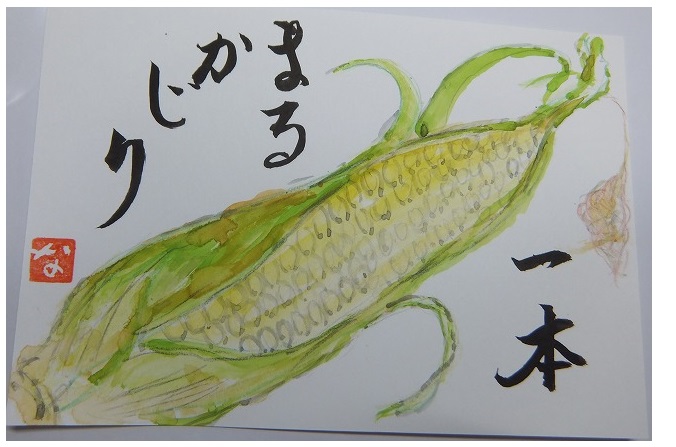 一本
まる
かじり
な